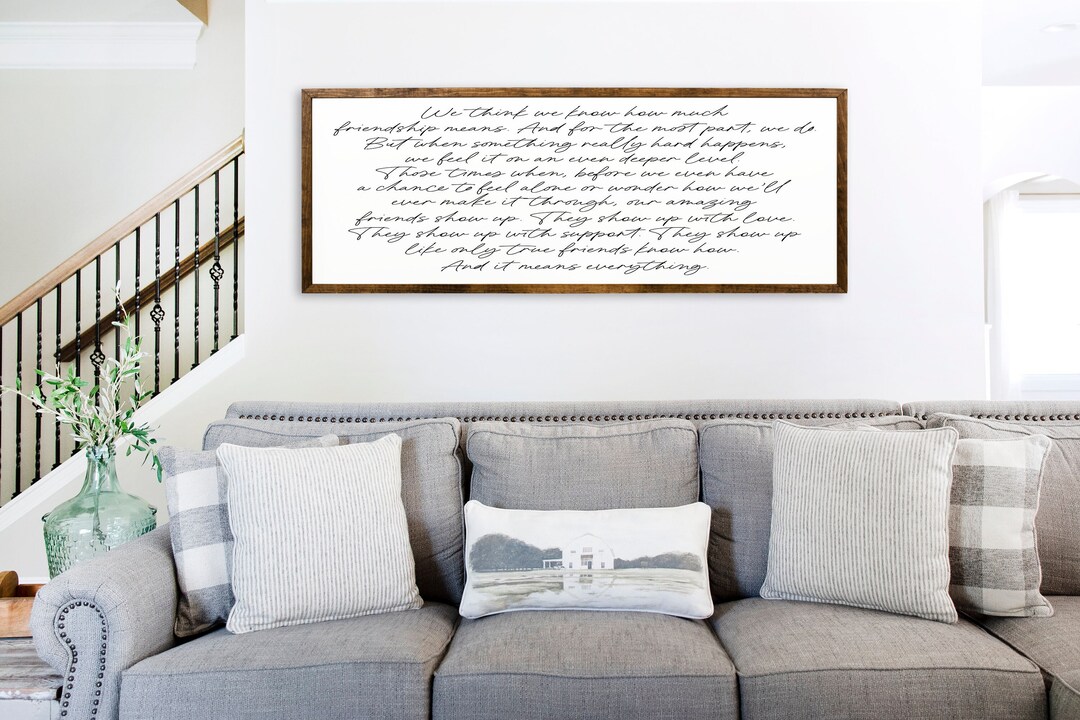 We think we know how much
friendship means. And for the most part, we do.
But when something really hard happens,
we feel it on an even deeper level.
Those times when, before we even have
a chance to feel alone or wonder how we'll
ever make it through, our amazing
friends show up. They show up with love.
They show up with support. They show up
like only true friends know how.
And it means everything.